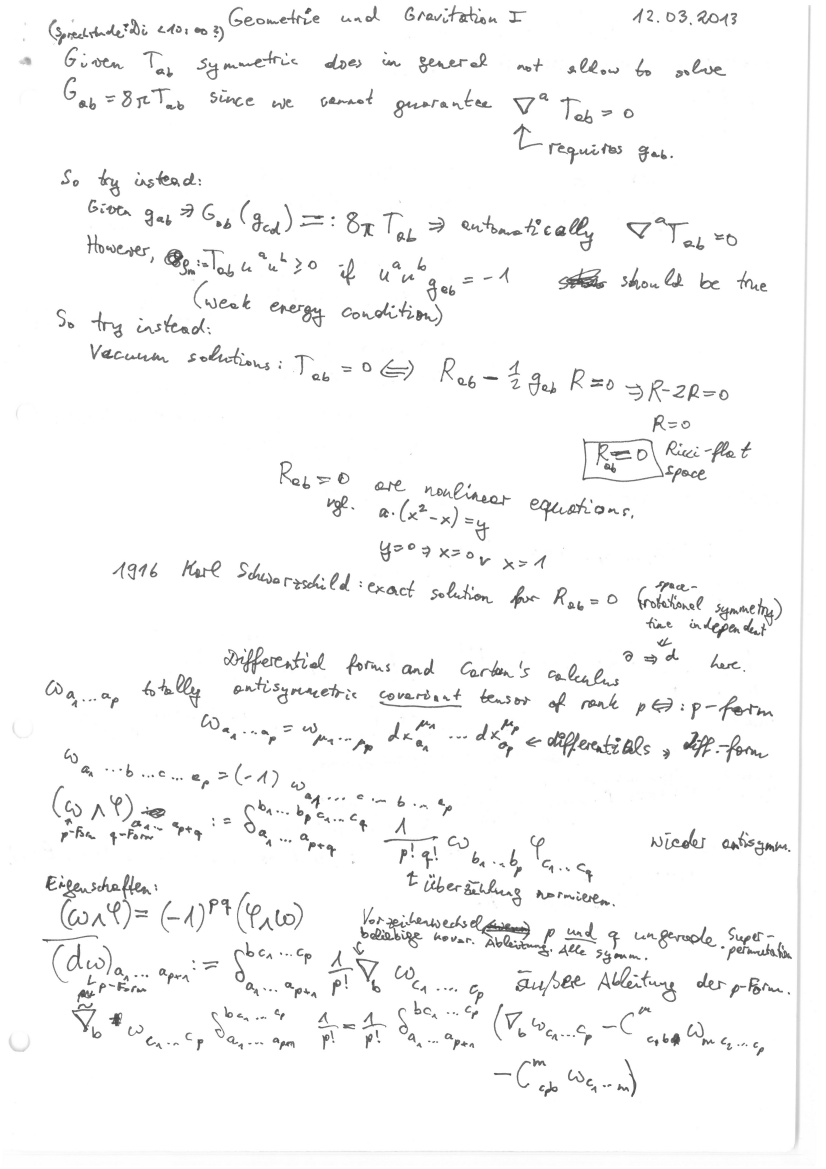 (Sprechstunde: Di <10:00?) Geometrie und Gravitation I 12.03.2013
Given T_ab symmetric does in general not allow to solve
G_ab = 8π T_ab since we cannot guarantee ∇^a T_ab = 0
↑ requires g_ab.
So try instead:
Given g_ab ⇒ G_ab (g_cd) =: 8π T_ab ⇒ automatically ∇^a T_ab = 0
However, ρ_m := T_ab u^a u^b ≥ 0 if u^a u^b g_ab = -1 should be true
(weak energy condition)
So try instead:
Vacuum solutions: T_ab = 0 ⇔ R_ab - 1/2 g_ab R = 0 ⇒ R-2R=0
R=0
R_ab = 0 Ricci-flat
space
R_ab = 0 are nonlinear equations.
vgl. a·(x²-x) = y
y=0 ⇒ x=0 ∨ x=1
1916 Karl Schwarzschild: exact solution for R_ab = 0 (space-
rotational symmetry)
time independent
∂ ⇒ d here.
Differential forms and Cartan's calculus
ω_{a_1...a_p} totally antisymmetric covariant tensor of rank p ⇔: p-form
ω_{a_1...a_p} = ω_{μ_1...μ_p} dx^{μ_1}_{a_1} ... dx^{μ_p}_{a_p} ← differentials, Diff.-form
ω_{a_1...b...c...a_p} = (-1) ω_{a_1...c...b...a_p}
(ω ∧ φ)_{a_1...a_{p+q}} := δ^{b_1...b_p c_1...c_q}_{a_1...a_{p+q}} 1/(p! q!) ω_{b_1...b_p} φ_{c_1...c_q} wieder antisymm.
p-Form q-Form
↑ überzählung normieren.
Eigenschaften:
(ω∧φ) = (-1)^{pq} (φ∧ω)
Vorzeichenwechsel p und q ungerade. Super-
permutation
beliebige kovar. Ableitung. Alle symm.
(dω)_{a_1...a_{p+1}} := δ^{b c_1...c_p}_{a_1...a_{p+1}} 1/p! ∇_b ω_{c_1...c_p} äußere Ableitung der p-Form.
p-Form
∇̃_b ω_{c_1...c_p} δ^{b c_1...c_p}_{a_1...a_{p+1}} 1/p! = 1/p! δ^{b c_1...c_p}_{a_1...a_{p+1}} (∇_b ω_{c_1...c_p} - C^m_{c_1 b} ω_{m c_2...c_p}
- C^m_{c_p b} ω_{c_1...m})